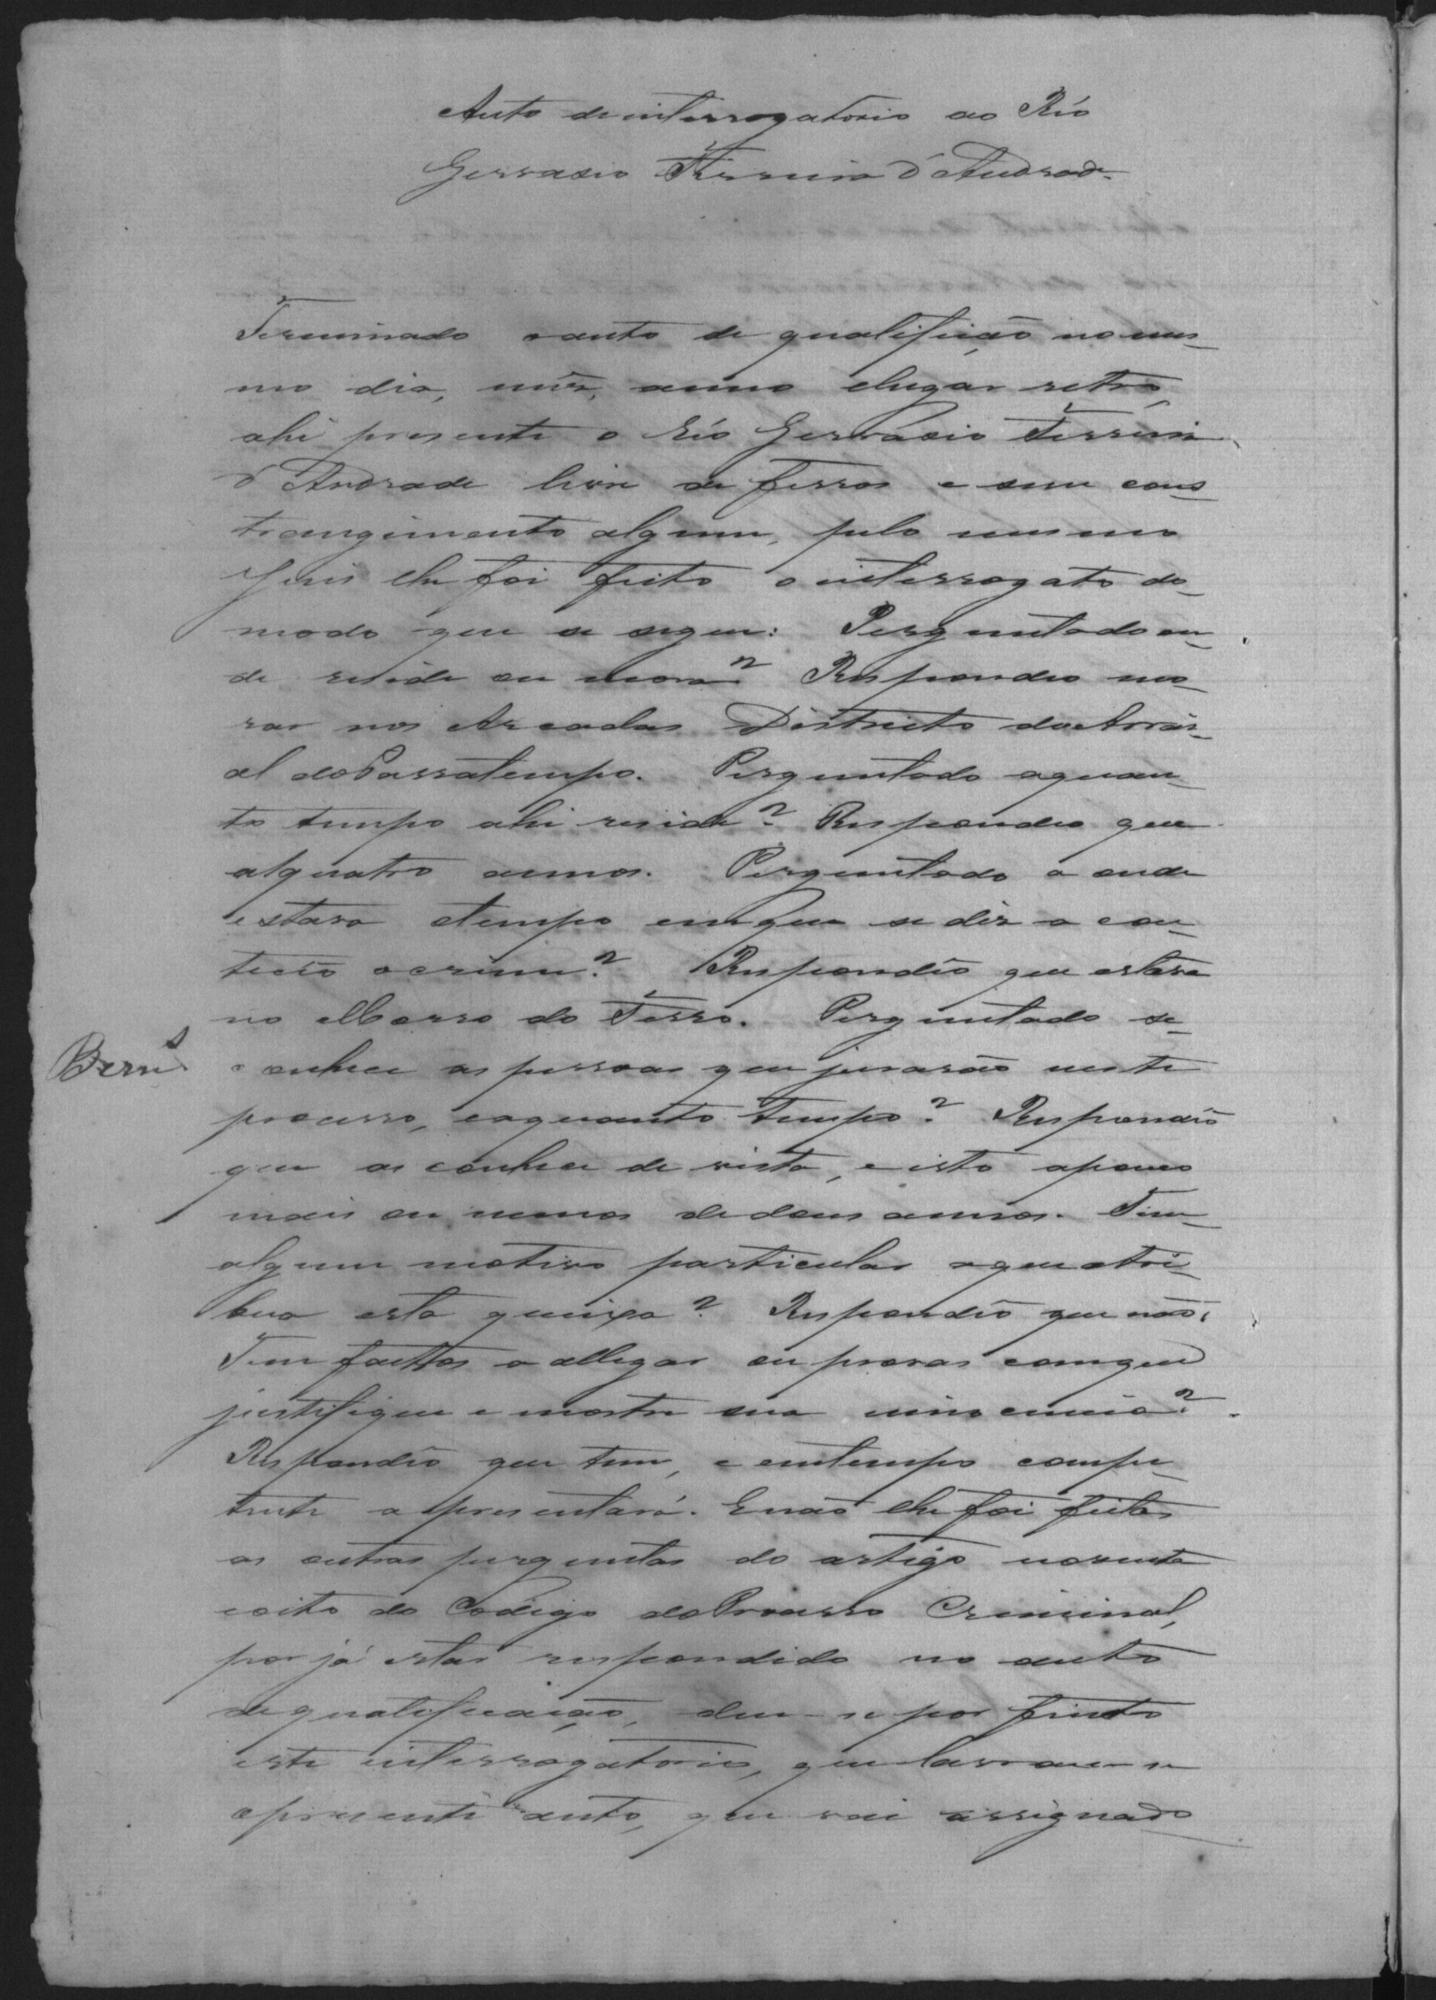 Auto de interrogatorio ao Réo
Gervasio Ferreira d'Andrade
Terminado o auto de qualificação no mes-
mo dia, mês, anno elugar retro,
ahi presente o Réo Gervasio Ferreira
d'Andrade livre de ferros e sem cons-
trangimento algum, pelo mesmo
Juis lhe foi feito o interrogato do
modo que se segue: Perguntado on-
de reside ou mora? Respondeo mo-
rar nos Arcados Districto do Arrai-
al do Passatempo. Perguntado a quan-
to tempo ahi reside? Respondeo que
a quatro annos. Perguntado a onde
estava o tempo em que se diz a con-
teceo o crime? Respondeo que estava
no Morro do Ferro. Perguntado se
conhece as pessoas que jurarão neste
processo, e a quanto tempo? Respondeo
que as conhece de vista, e isto a pouco
mais ou menos de dous annos. Tem
algum motivo particular a que atri-
bua esta queixa? Respondeo que não.
Tem factos a allegar ou provas com que
justifique e mostre sua innocencia?
Respondeo que tem, e em tempo compe-
tente apresentará. E não lhe foi feitas
as outras perguntas do artigo noventa
e oito do Codigo do Processo Criminal,
por já estar respondido no auto
de qualificação, deu-se por findo
este interrogatorio, que lavrou-se
o presente auto, que vai assignado